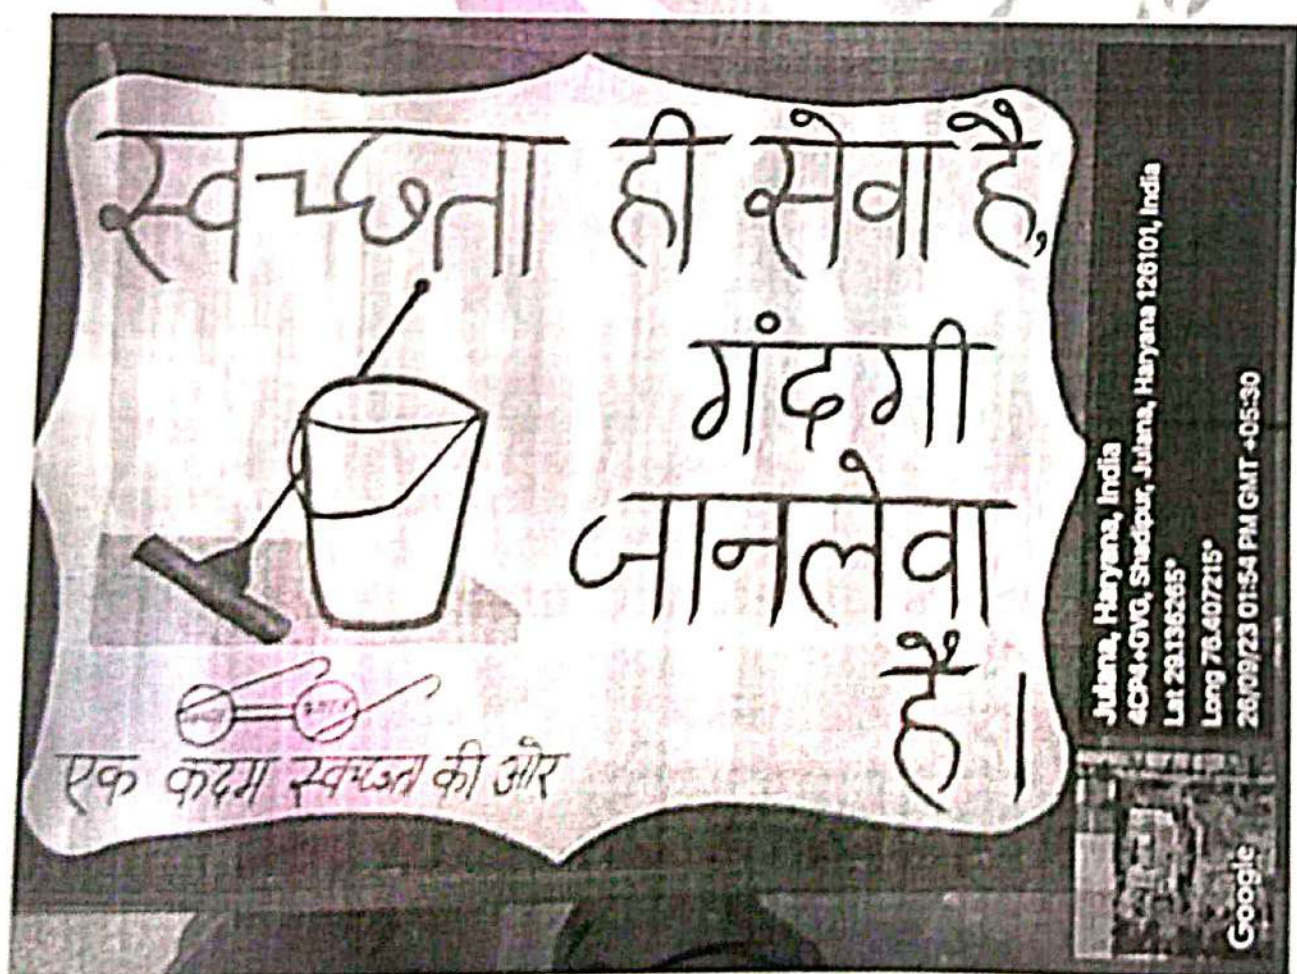 स्वच्छता ही सेवा है,
गंदगी
जानलेवा
है।
एक कदम स्वच्छता की ओर
Julana, Haryana, India
4CP4+GVG, Shadipur, Julana, Haryana 126101, India
Lat 29.136265°
Long 76.407215°
26/09/23 01:54 PM GMT +05:30
Google